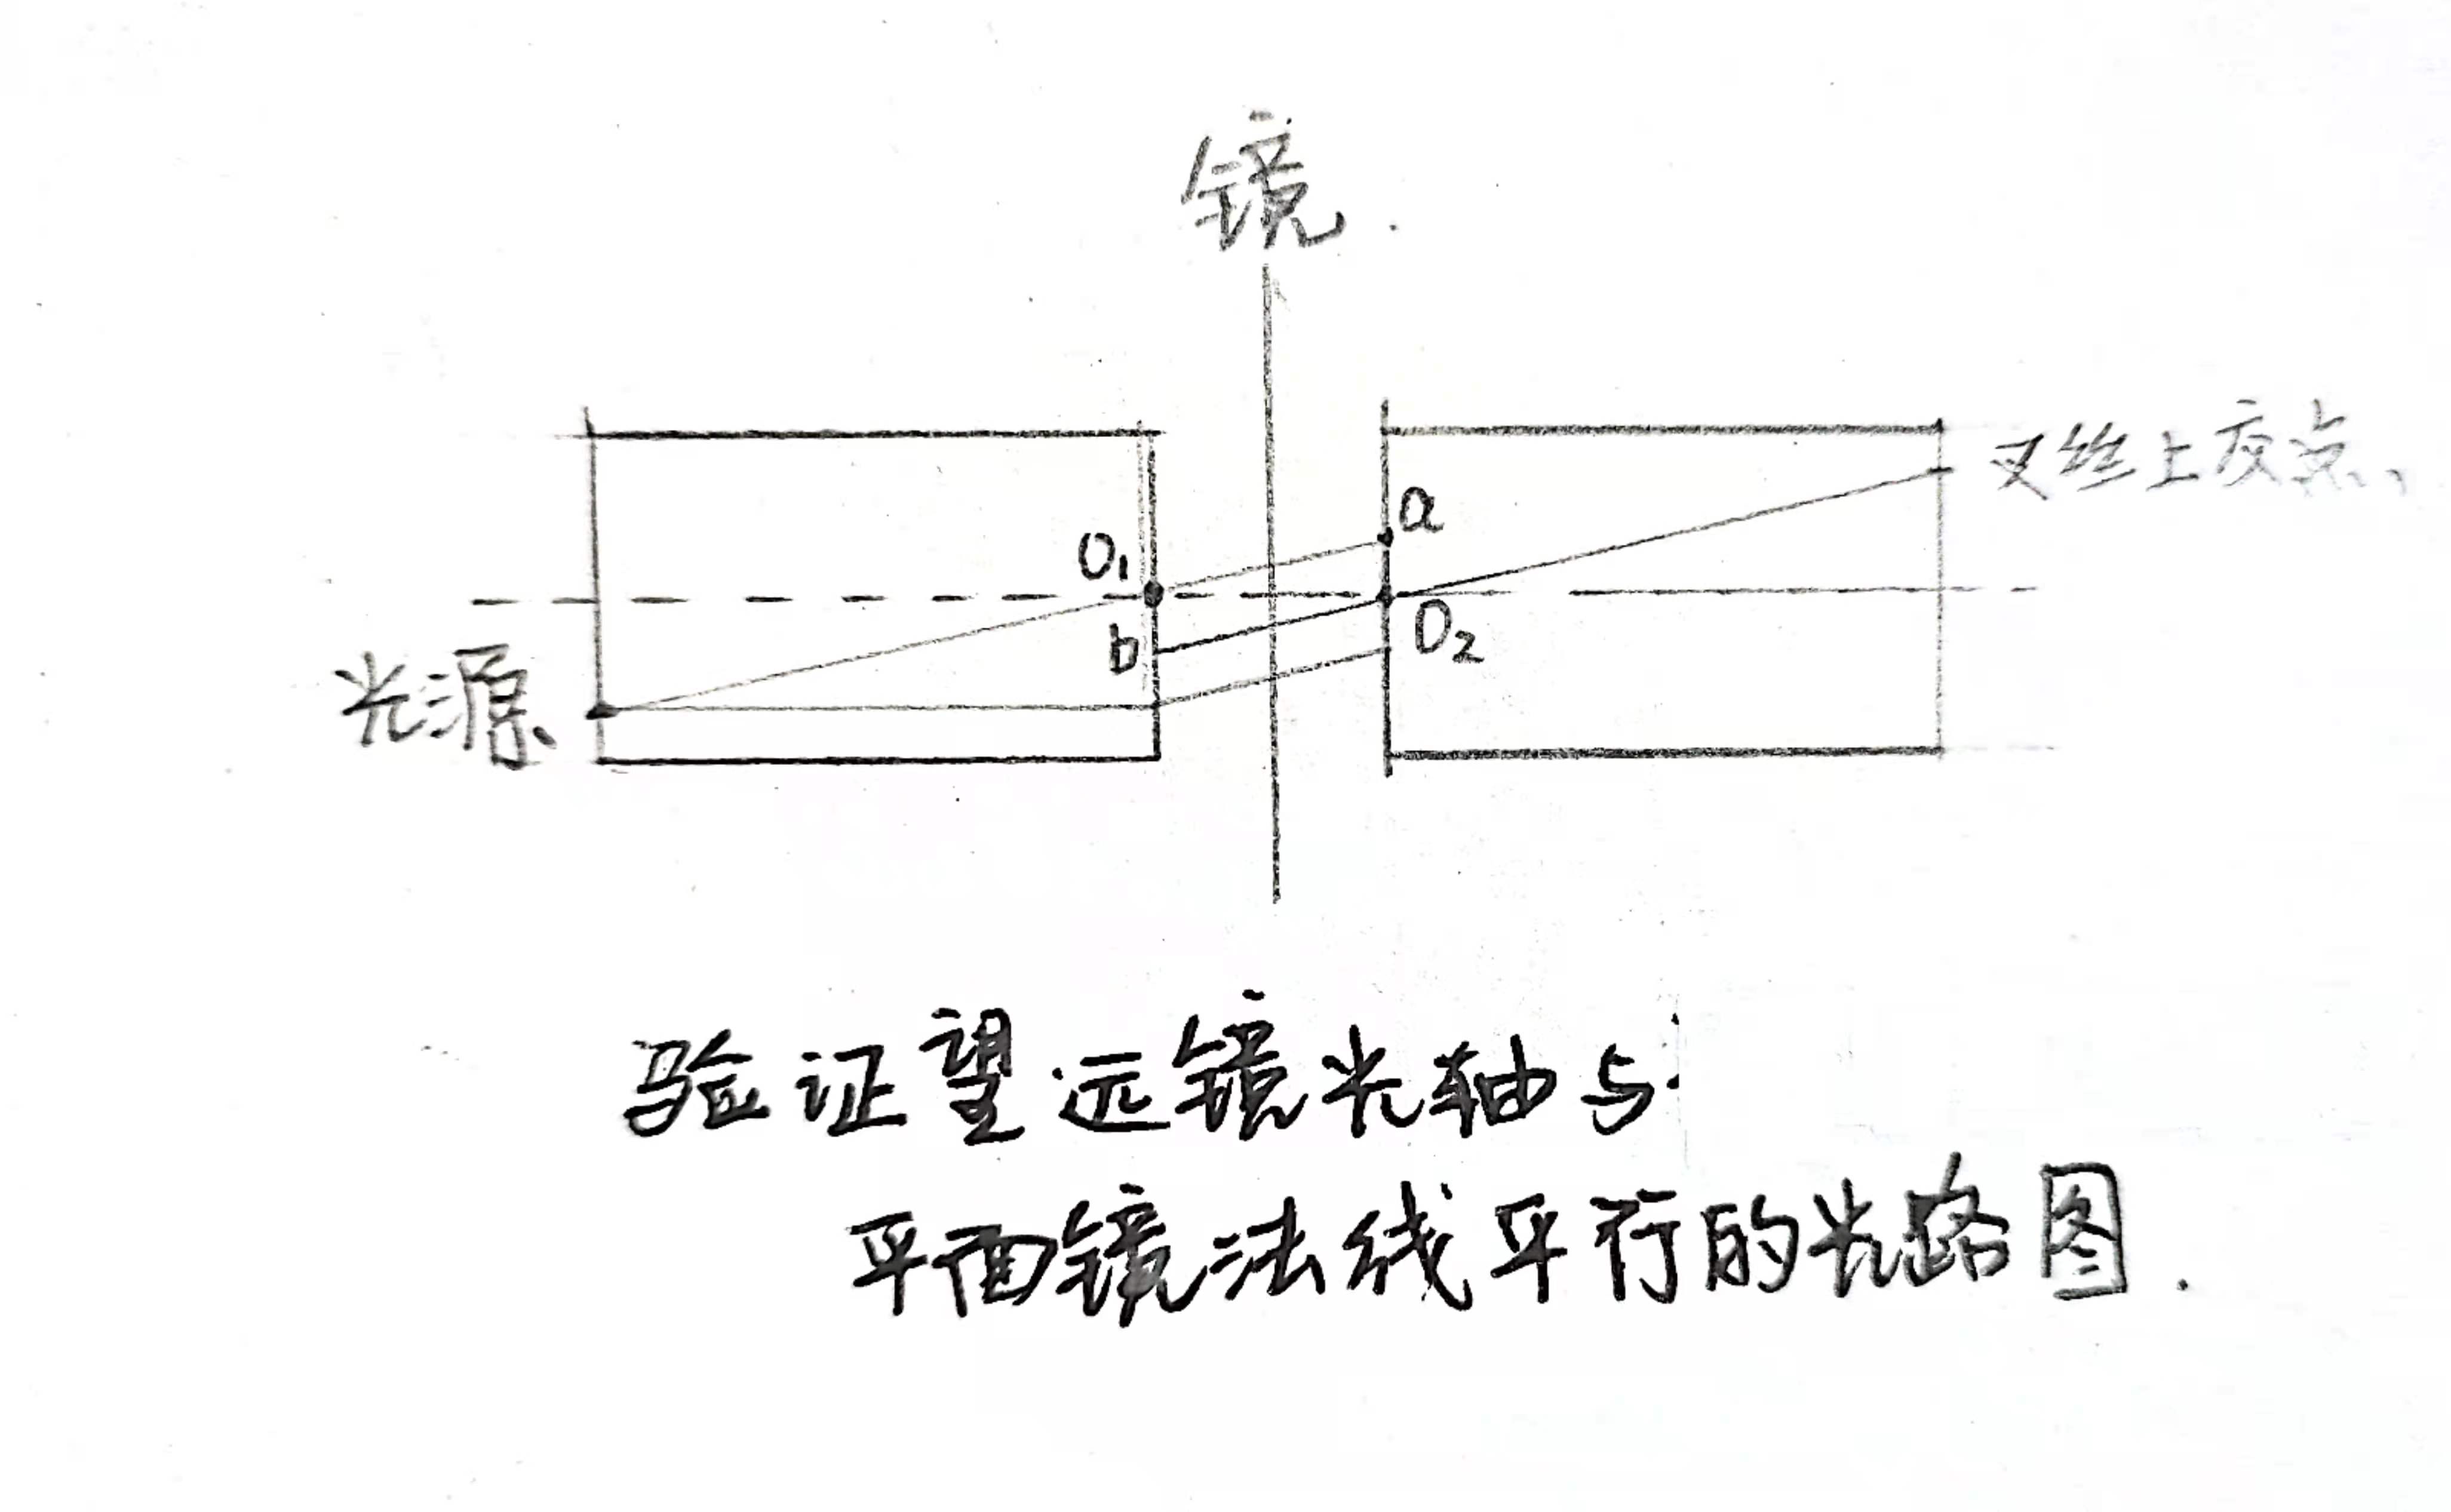 镜.
叉丝上交点、
a
O₁
b
O₂
光源、
验证望远镜光轴与
平面镜法线平行的光路图.